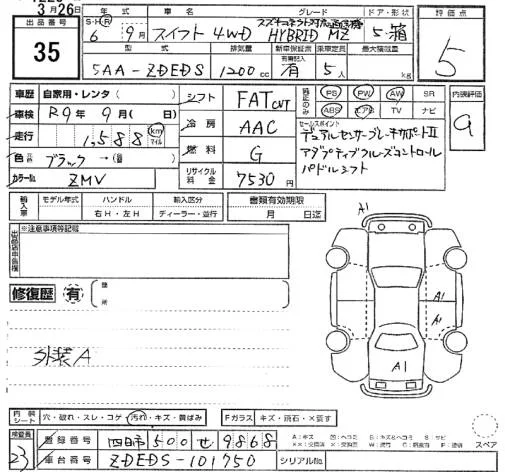 3月26日
出品番号 35
年式 S・H・R 6年9月
車名 スイフト 4WD
グレード スズキコネクト対応通信機 HYBRID MZ
ドア・形状 5・箱
評価点 5
5AA-ZDEDS
排気量 1200cc
新車保証書 有
乗車定員 5人
最大積載量 kg
車歴 自家用・レンタ( )
シフト FAT CVT
PS PW AW SR
ABS エアB TV ナビ
内装評価 a
車検 R9年9月( 日)
冷房 AAC
セールスポイント
デュアルセンサーブレーキサポートII
アダプティブクルーズコントロール
パドルシフト
走行 1,588 km マイル
燃料 G
色 ブラック→( )
カラーNo ZMV
リサイクル料金 7530円
輸入車 モデル年式 ハンドル 右H・左H 輸入区分 ディーラー・並行
書類有効期限 月 日迄
※注意事項等記載
出品店申告欄
修復歴 有 箇所
A1
A1
A1
A1
外装A
内装シート 穴・破れ・スレ・コゲ・汚れ・キズ・黄ばみ
Fガラス キズ・飛石・×張す
検査番 23
登録番号 四日市 500 せ 9868
車台番号 ZDEDS-101750
シリアルNo.
スペア